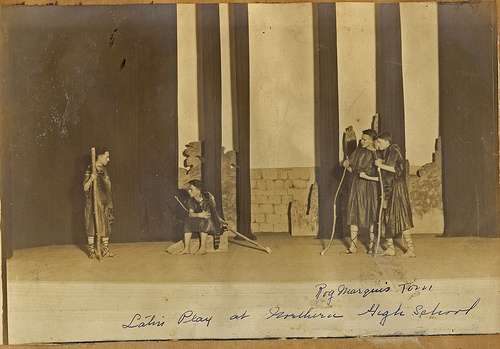 Rog Marquis Tom
Latin Play at Northern High School